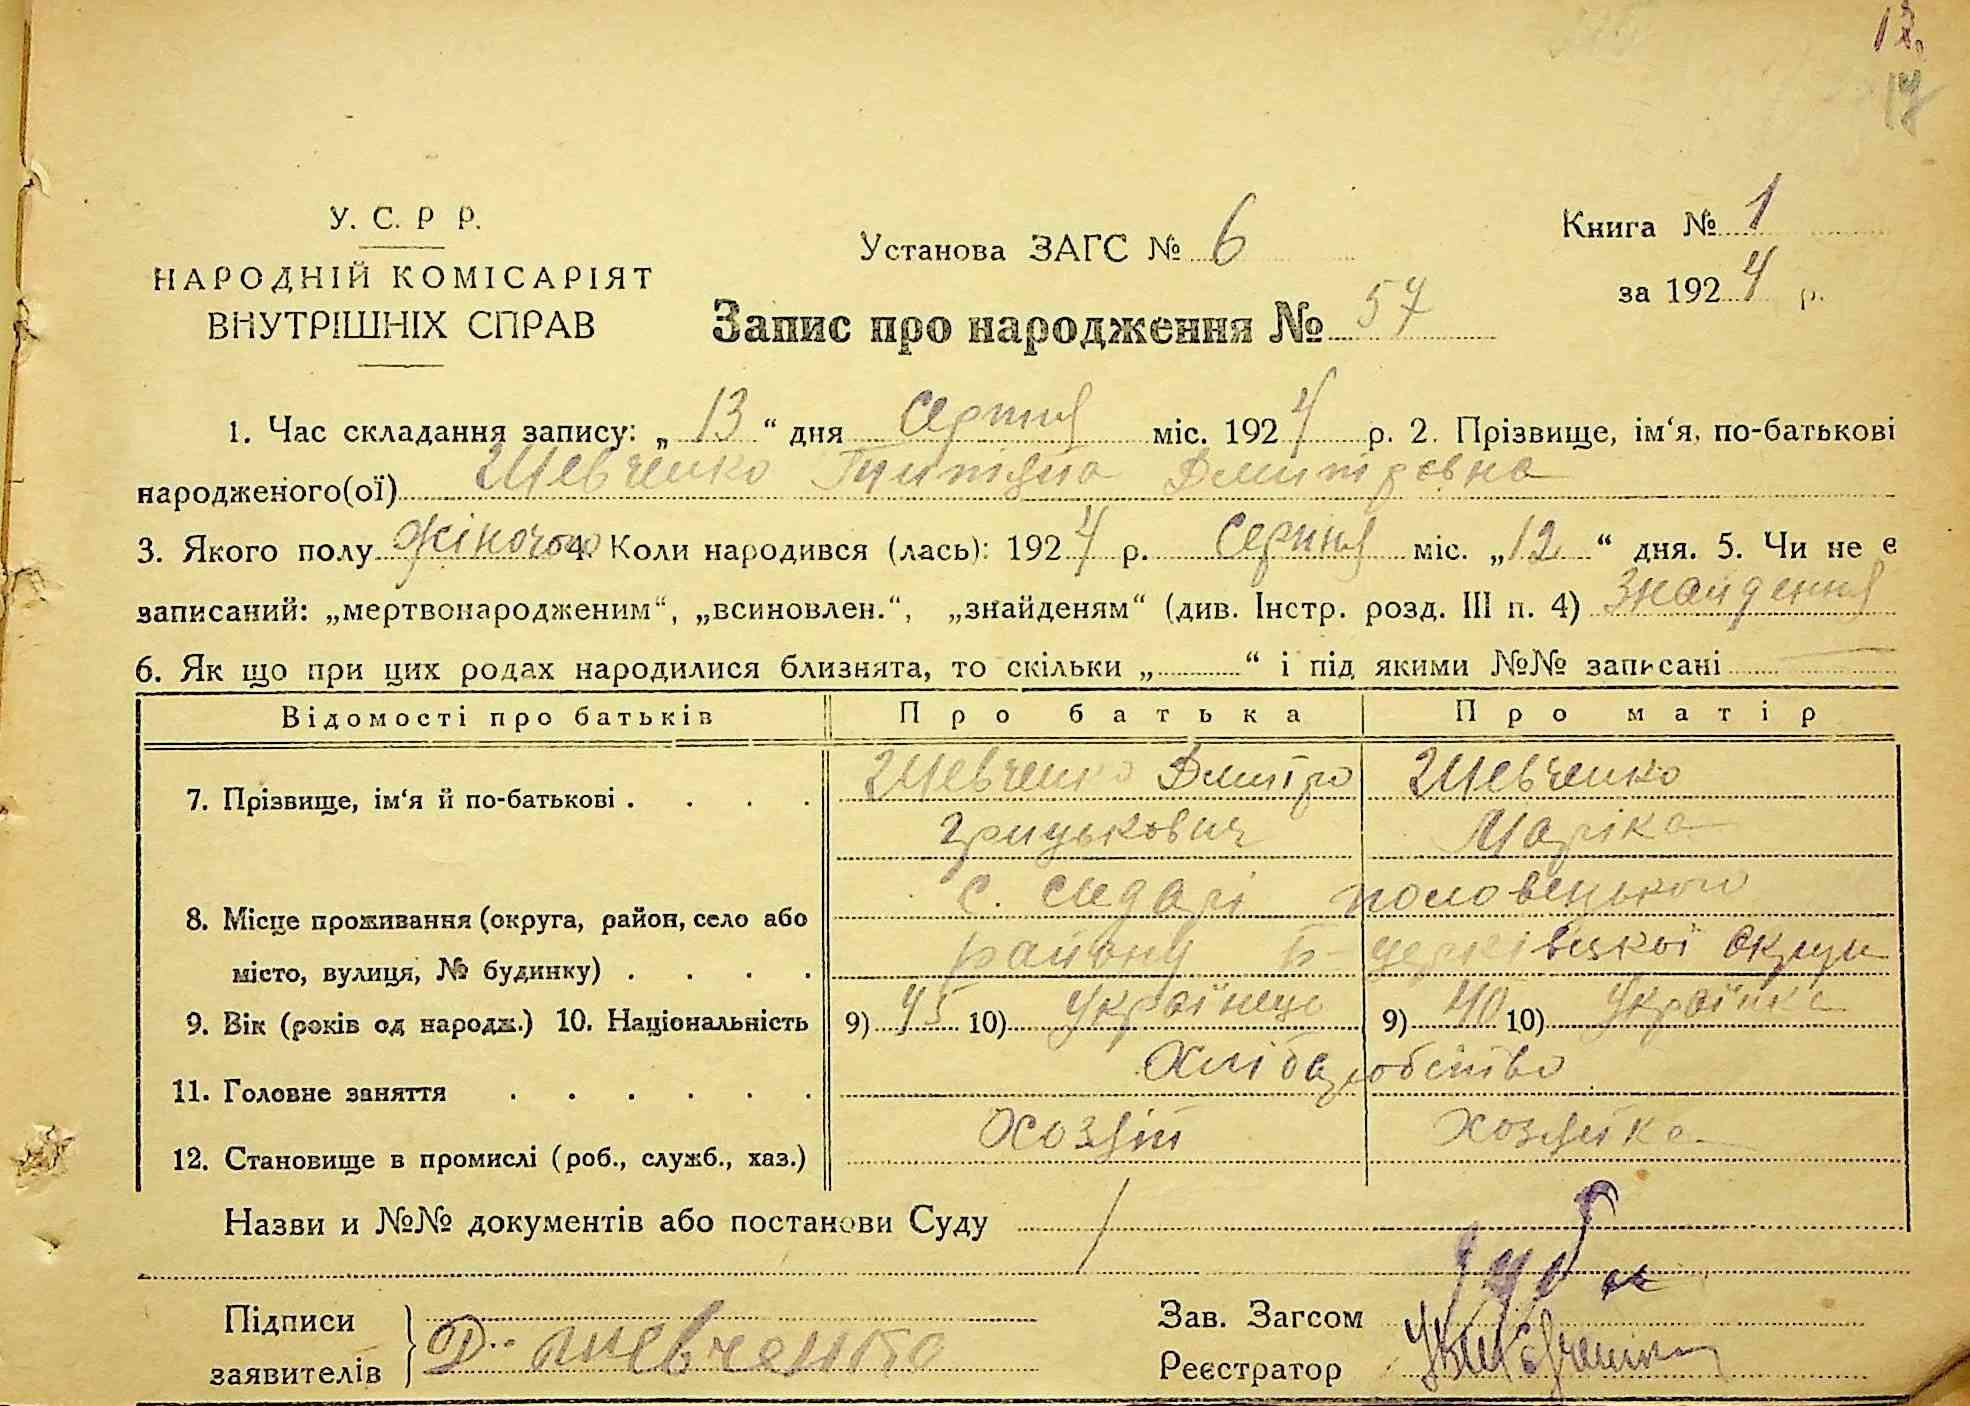 12.
17
У. С. Р Р.
НАРОДНІЙ КОМІСАРІЯТ
ВНУТРІШНІХ СПРАВ
Установа ЗАГС № 6
Книга № 1
за 1924 р.
Запис про народження № 57
1. Час складання запису: „ 13 “ дня Серпня міс. 1924 р. 2. Прізвище, ім‘я, по-батькові
народженого(ої) Шевченко Дмитровна
3. Якого полу жіночого 4. Коли народився (лась): 1924 р. Серпня міс. „ 12 “ дня. 5. Чи не є
записаний: „мертвонародженим“, „всиновлен.“, „знайденям“ (див. Інстр. розд. III п. 4) Знайдення
6. Як що при цих родах народилися близнята, то скільки „ “ і під якими №№ записані
Відомості про батьків Про батька Про матір
7. Прізвище, ім‘я й по-батькові . . . . Шевченко Дмитро Шевченко
Грицькович Маріка
8. Місце проживання (округа, район, село або с. Сидорі половецького
місто, вулиця, № будинку) . . . . району Б-церківської округи
9. Вік (років од народж.) 10. Національність 9) 45 10) Українець 9) 40 10) Українка
11. Головне заняття . . . . . . Хліборобство
12. Становище в промислі (роб., служб., хаз.) Хозяїн хозяйка
Назви и №№ документів або постанови Суду
Підписи
заявителів Д. Шевченко
Зав. Загсом
Реєстратор